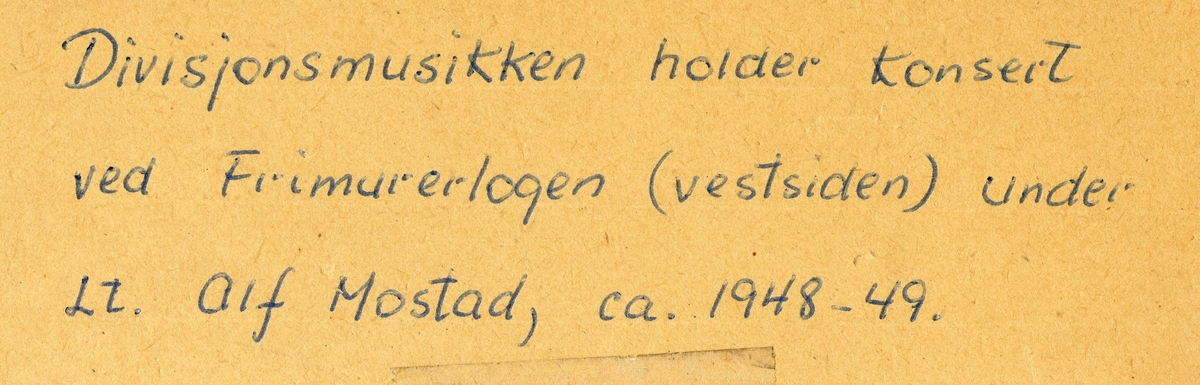 Divisjonsmusikken holder konsert
ved Frimurerlogen (vestsiden) under
Lt. Alf Mostad, ca. 1948-49.